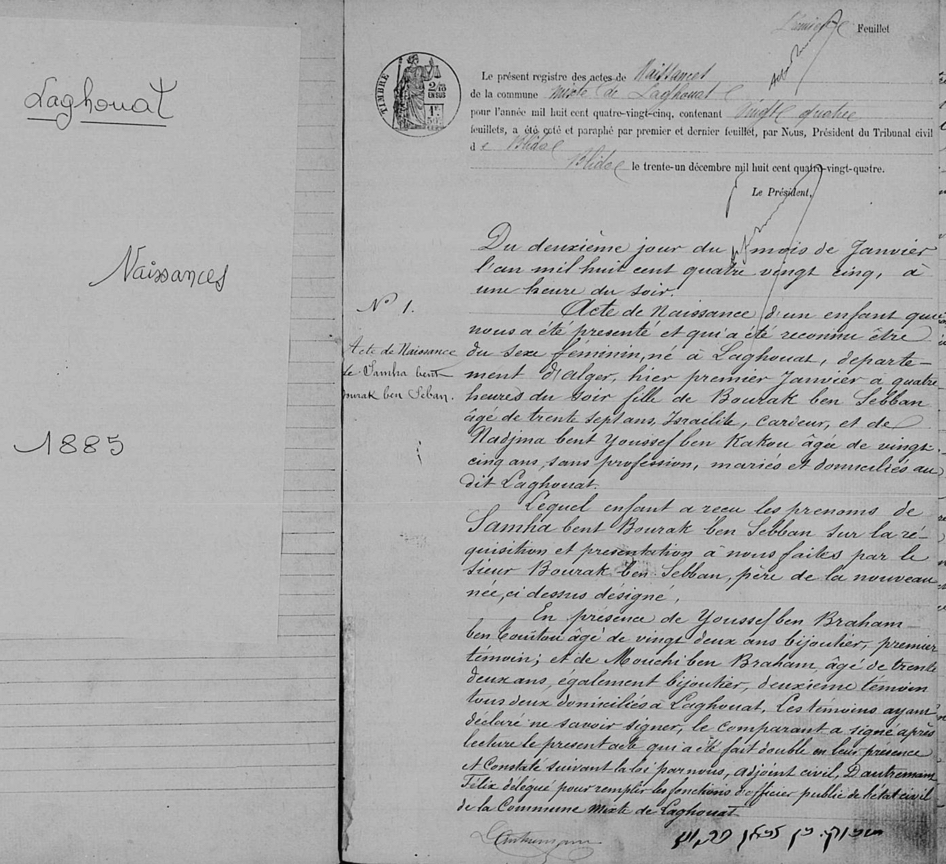 Laghouat
Naissances
1885
Feuillet
TIMBRE
2/10
EN SUS
Le présent registre des actes de Naissances
de la commune mixte de Laghouat
pour l'année mil huit cent quatre-vingt-cinq, contenant vingt quatre
feuillets, a été coté et paraphé par premier et dernier feuillet, par Nous, Président du Tribunal civil
de Blida
Blida le trente-un décembre mil huit cent quatre-vingt-quatre.
Le Président,
Du deuxième jour du mois de Janvier
l'an mil huit cent quatre vingt cinq, à
une heure du soir.
N° 1.
Acte de Naissance
de Samha bent
Bourak ben Seban.
Acte de Naissance d'un enfant qui
nous a été présenté et qui a été reconnu être
du sexe féminin, né à Laghouat, départe-
ment d'Alger, hier premier Janvier a quatre
heures du soir fille de Bourak ben Sebban
âgé de trente sept ans, Israilite, cardeur, et de
Nadjma bent Youssef ben Kakou âgée de vingt
cinq ans, sans profession, mariés et domiciliés au
dit Laghouat.
Lequel enfant a recu les prenoms de
Samha bent Bourak ben Sebban sur la ré-
quisition et presentation à nous faites par le
sieur Bourak ben Sebban, père de la nouveau
née, ci dessus désigné.
En présence de Youssef ben Braham
ben Touitou âgé de vingt deux ans bijoutier, premier
témoin; et de Mouchi ben Braham, âgé de trente
deux ans, egalement bijoutier, deuxieme temoin
tous deux domiciliés à Laghouat. Les temoins ayant
déclaré ne savoir signer, le comparant a signé après
lecture le present acte qui a été fait double en leur presence
et Constaté suivant la loi par nous, adjoint civil, Dautremam
Félix délégué pour remplir les fonctions d'officier public de l'état civil
de la Commune mixte de Laghouat